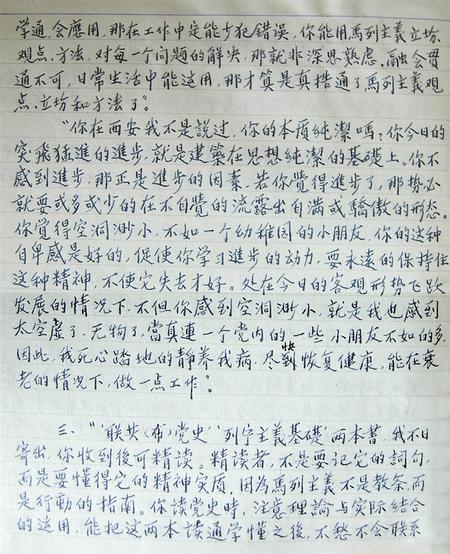 学通,会應用,那在工作中定能少犯錯误,你能用馬列主義立場、
观点、方法,对每一个问題的解决,那就非深思熟慮,融会貫
通不可,日常生活中能运用,那才算是真搞通了馬列主義观
点、立坊和方法了。"
"你在西安我不是説过,你的本质純潔嗎,你今日的
突飛猛進的進步,就是建築在思想純潔的基礎上。你不
感到進步,那正是進步的因素,若你覺得進步了,那势必
就要或多或少的在不自覺的流露出自满或驕傲的形态。
你覺得空洞渺小,不如一个幼稚园的小朋友,你的这种
自卑感是好的,促使你学习進步的动力,要永遠的保持住
这种精神,不使它失去才好。处在今日的客观形势飞跃
发展的情况下,不但你感到空洞渺小,就是我也感到
太空虚了,无物了,當真連一个党内的一些小朋友不如的多,
因此,我死心踏地的静养我病,尽快到恢复健康,能在衰
老的情况下,做一点工作。"
三、"'联共(布)党史''列宁主義基礎'两本書,我不日
寄出,你收到後可精读。精读者,不是要记它的詞句,
而是要懂得它的精神实质,因為馬列主義不是教条,而
是行動的指南。你读党史時,注意理論与实际结合
的运用,能把这两本读通学懂之後,不愁不会联系